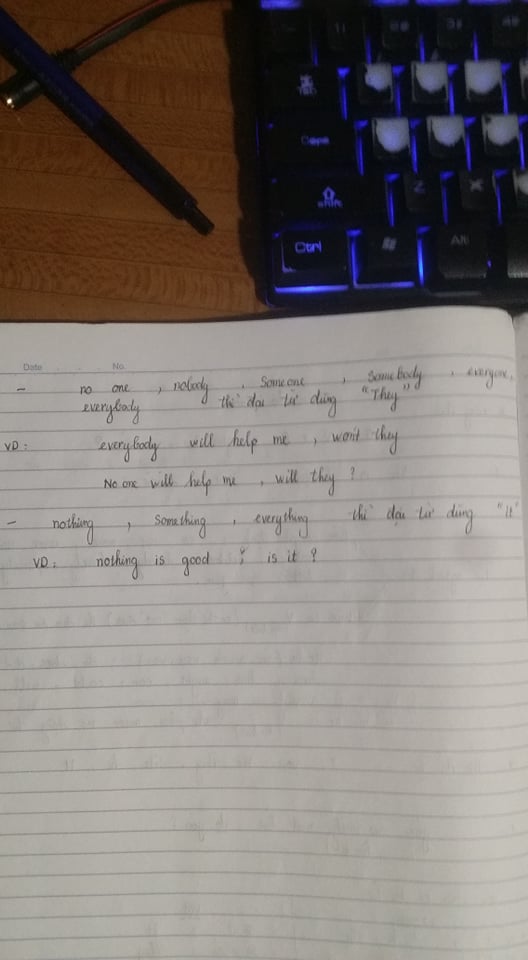 Tab
Caps
shift Z X
Ctrl Alt
Date No.
- no one , nobody , Someone , Somebody , everyone,
everybody thì đại từ dùng "They"
VD: everybody will help me , won't they
No one will help me , will they ?
- nothing , Something , everything thì đại từ dùng "it"
VD: nothing is good , is it ?